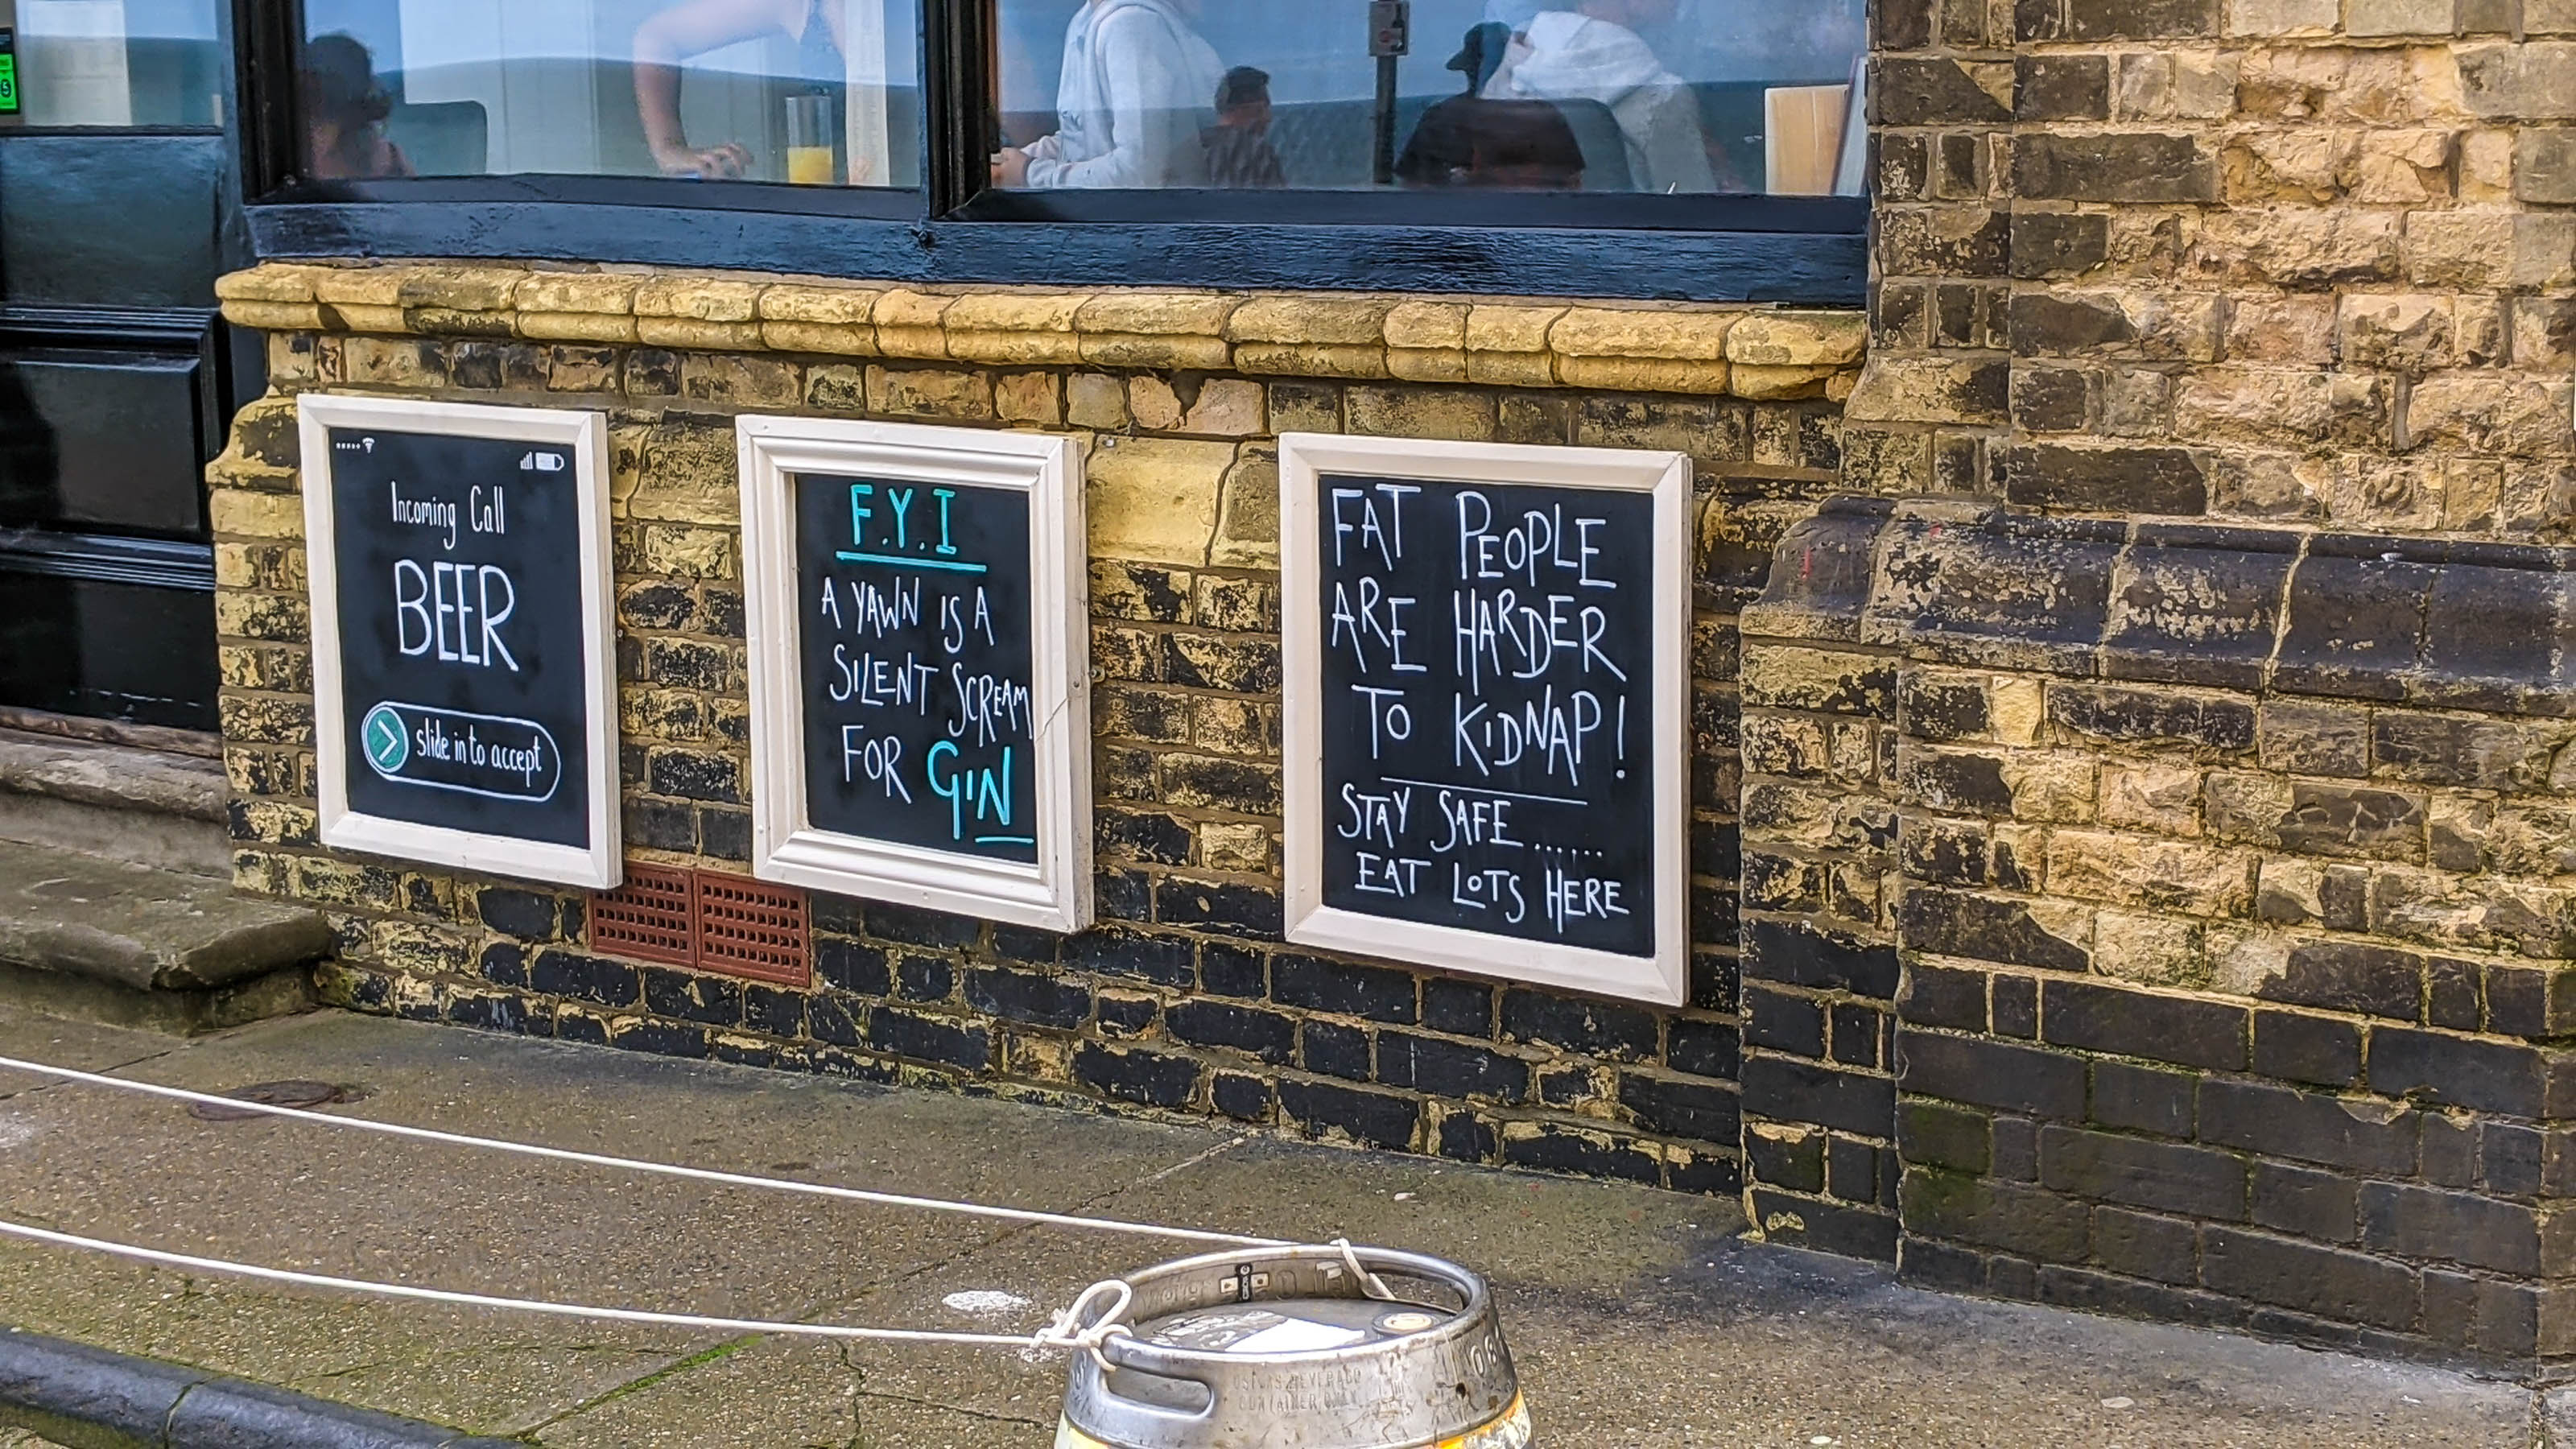 Incoming Call
BEER
slide in to accept
F.Y.I
A YAWN IS A
SILENT SCREAM
FOR GIN
FAT PEOPLE
ARE HARDER
TO KIDNAP!
STAY SAFE......
EAT LOTS HERE